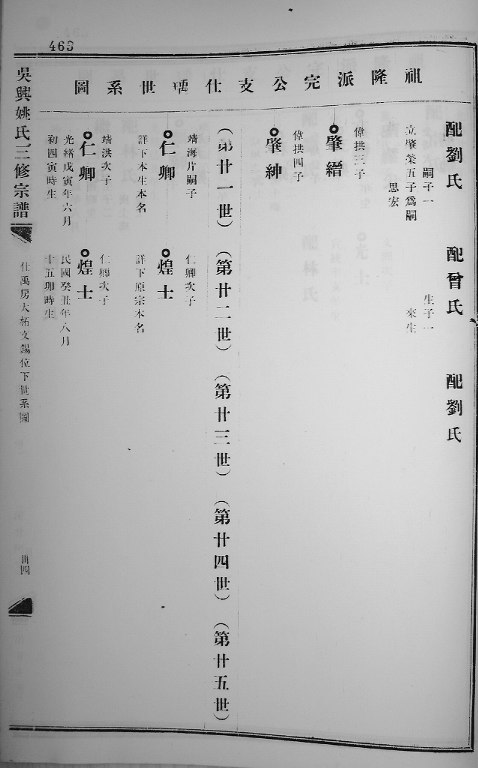 463
祖隆派完公支仕瑀世系圖
配劉氏
配曾氏
配劉氏
嗣子一
生子一
立肇榮五子爲嗣
思宏
來生
肇縉
偉拱三子
肇紳
偉拱四子
（第廿一世）（第廿二世）（第廿三世）（第廿四世）（第廿五世）
靖海片嗣子
仁卿次子
仁卿
煌士
詳下本生本名
詳下原宗本名
靖洪次子
仁卿次子
仁卿
煌士
光緒戊寅年六月
初四寅時生
民國癸丑年八月
十五卯時生
吳興姚氏三修宗譜
仕禹房大柘文錫位下世系圖
卌四